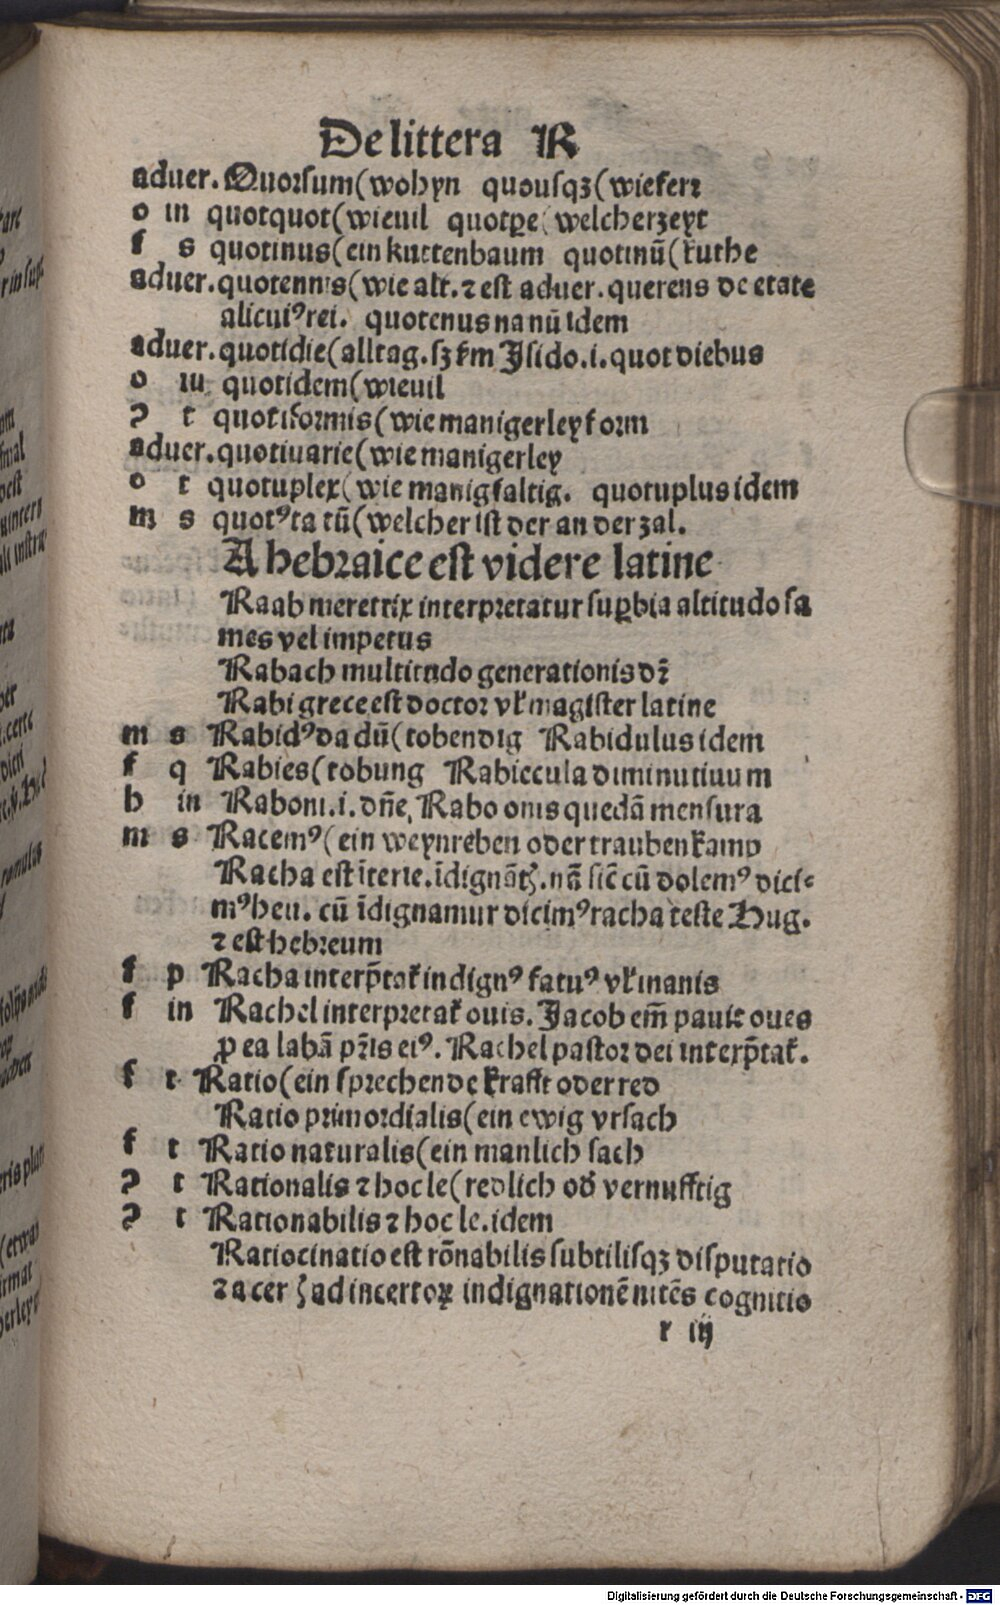 De littera R
aduer. Quorsum(wohyn quousqꝫ(wieferꝛ
o in quotquot(wieuil quotꝑe(welcherzeyt
f s quotinus(ein kuttenbaum quotinū(kuthe
aduer. quotennis(wie alt. ⁊ est aduer. querens de etate
alicuiꝰ rei. quotenus na nū idem
aduer. quotidie(alltag. sꝫ km Isido. i. quot diebus
o in quotidem(wieuil
ꝯ t quotiformis(wie manigerley form
aduer. quotiuarie(wie manigerley
o t quotuplex(wie manigfaltig. quotuplus idem
m s quotꝰ ta tū(welcher ist der an der zal.
RA hebraice est videre latine
Raab meretrix interpretatur suꝑbia altitudo fa
mes vel impetus
Rabach multitudo generationis dꝛ̄
Rabi grece est doctor vl̓ magister latine
m s Rabidꝰ da dū(tobendig Rabidulus idem
f q Rabies(tobung Rabiecula diminutiuum
h in Raboni. i. dn̄e, Rabo onis quedā mensura
m s Racemꝰ(ein weynreben oder traubenkamp
Racha est īterie. īdignātꝭ. nā sic̄ cū dolemꝰ dici⸗
mꝰ heu. cū īdignamur dicimꝰ racha teste Hug.
⁊ est hebreum
f p Racha interp̄tat᷑ indignꝰ fatuꝰ vl̓ inanis
f in Rachel interpretat᷑ ouis. Jacob em̄ pauit oues
ꝓ ea labā pr̄is eiꝰ. Rachel pastor dei interp̄tat᷑.
f t Ratio(ein sprechende krafft oder red
Ratio primordialis(ein ewig vrsach
f t Ratio naturalis(ein manlich sach
ꝯ t Rationalis ⁊ hoc le(redlich od̓ vernufftig
ꝯ t Rationabilis ⁊ hoc le. idem
Ratiocinatio est rōnabilis subtilisqꝫ disputatio
⁊ acer ad incertoꝝ indignationē nitēs cognitio
r iij
Digitalisierung gefördert durch die Deutsche Forschungsgemeinschaft - DFG